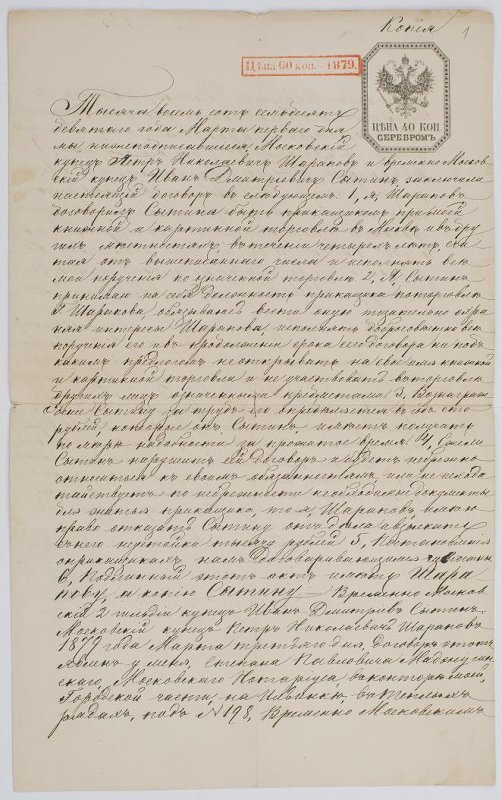 Копія
1
Цѣна 60 коп. — 1879.
ЦѢНА 40 КОП
СЕРЕБРОМЪ
Тысяча восемь сотъ семьдесятъ
девятаго года Марта перваго дня
мы нижеподписавшіеся, Московскій
купецъ Петръ Николаевичъ Шараповъ и временно Москов
скій купецъ Иванъ Дмитріевичъ Сытинъ, заключили
настоящій договоръ въ слѣдующемъ: 1, я, Шараповъ
договорилъ Сытина быть прикащикомъ при моей
книжной и картинной торговлѣ въ Москвѣ и въ дру
гихъ мѣстностяхъ, въ теченіи четырехъ лѣтъ, счи
тая отъ вышеписаннаго числа и исполнять все
мои порученія по означенной торговлѣ 2, Я, Сытинъ
принимаю на себя должность прикащика по торговлѣ
Г. Шарапова, обязываюсь вести оную тщательно обере
гая интересы Шарапова, исполнять добросовѣстно все
порученія его и въ продолженіи срока сего договора ни подъ
какимъ предлогомъ не открывать на свое имя книжной
и картинной торговли и не участвовать въ торговлѣ
другихъ лицъ означенными предметами 3, Вознаграж
деніе Сытину за трудъ его опредѣляется въ годъ сто
рублей которые онъ, Сытинъ, имѣетъ получать
по мѣрѣ надобности за прожитое время 4, Если
Сытинъ нарушитъ сей договоръ и будетъ небрежно
относиться къ своимъ обязанностямъ или не
по небрежности необходимые документы
для прикащика, то я, Шараповъ, имѣю
право отказать Сытину отъ дела и взыскать
съ него неустойки тысячу рублей 5,
о прикащикахъ намъ договаривающимся
6, Подлинный этотъ актъ имѣть Шара
пову, а копію Сытину — Временно Москов
скій 2 гильдіи купецъ Иванъ Дмитріевъ Сытинъ
Московскій купецъ Петръ Николаевичъ Шараповъ
1879 года Марта третьяго дня, договоръ этотъ
явленъ у меня, Степана Павловича
скаго, Московскаго Нотаріуса въ конторѣ моей,
Городской части, на Ильинкѣ, въ Теплыхъ
рядахъ, подъ № 198, Временно Московскимъ